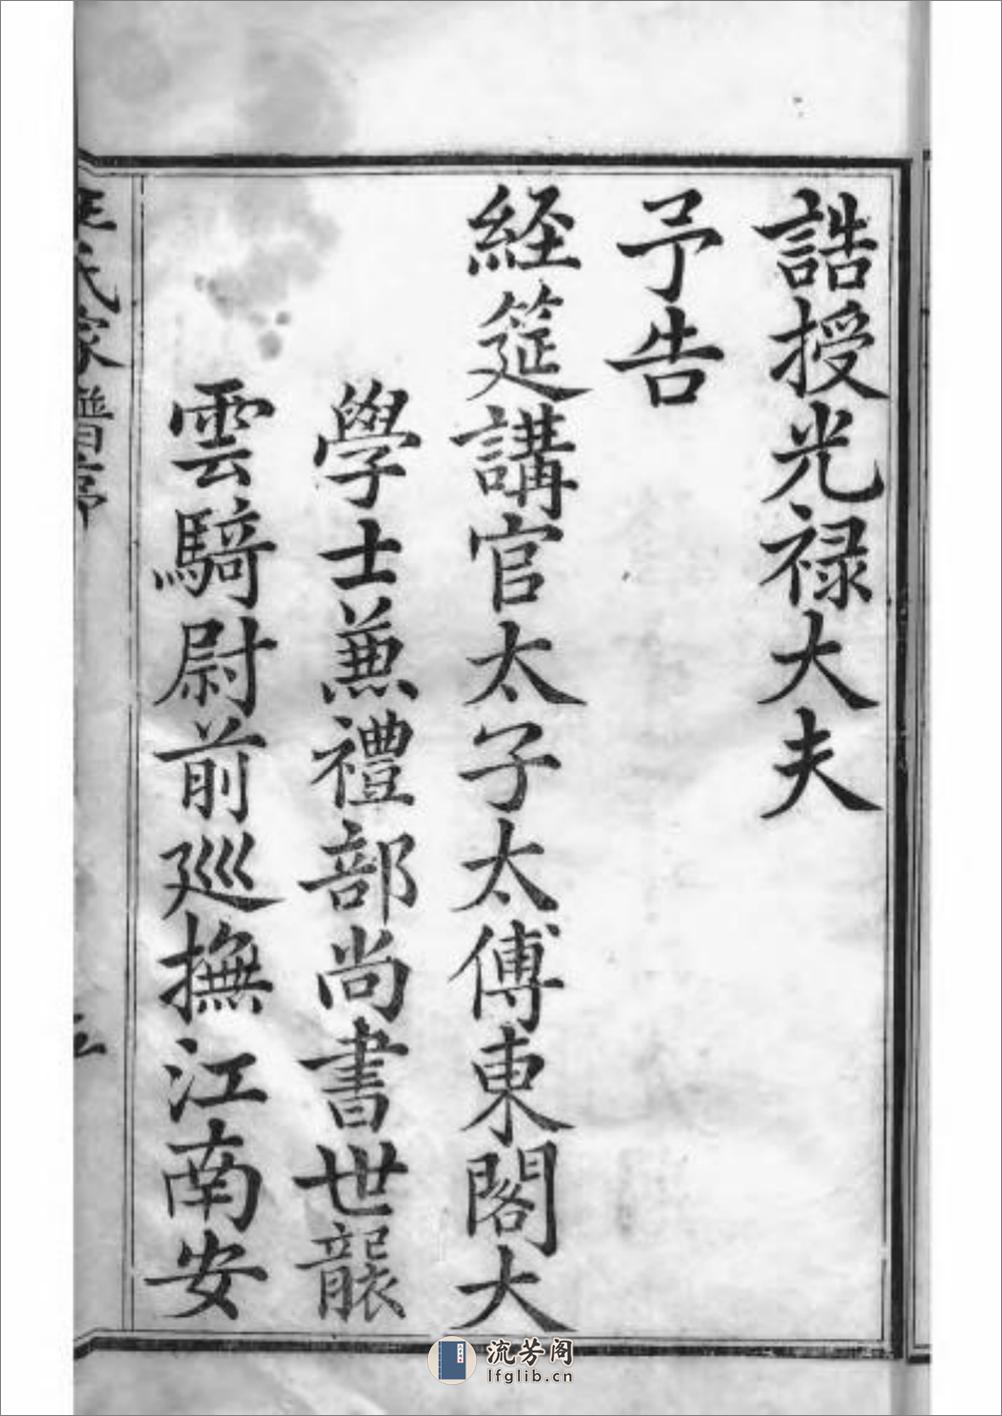 誥授光禄大夫
予告
経筵講官太子太傅東閣大
學士兼禮部尚書世襲
雲騎尉前巡撫江南安
氏家譜序
流芳阁
lfglib.cn